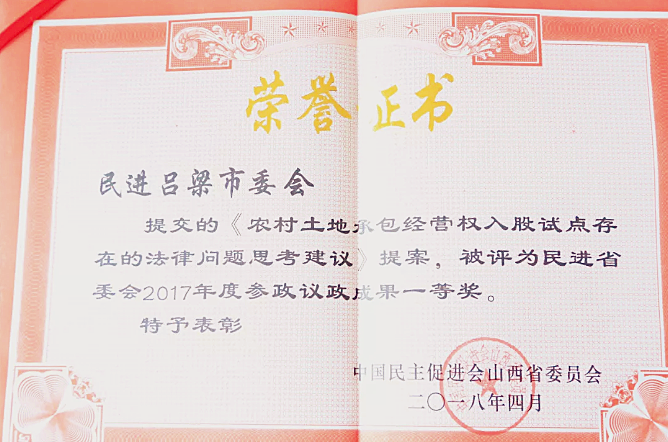 荣誉证书
民进吕梁市委会
提交的《农村土地承包经营权入股试点存
在的法律问题思考建议》提案，被评为民进省
委会2017年度参政议政成果一等奖。
特予表彰
中国民主促进会山西省委员会
二〇一八年四月